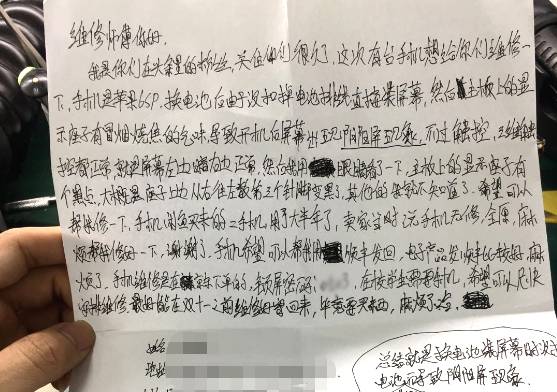 维修师傅你好
我是你们在头条里的粉丝,关注你们很久了,这次有台手机想给你们维修一
下,手机是苹果6SP,换电池后由于没扣掉电池排线直接装屏幕,然后主板上的显
示座子有冒烟烧焦的气味,导致开机后屏幕出现阴阳屏现象,不过触控,
都正常,就是屏幕左边暗右边正常,然后我用眼睛看了一下,主板上的显示座子有
个黑点,大概是座子上边从右往左数第三个针脚变黑了,其他的我就不知道了,希望可以
帮我维修一下,手机闲鱼买来的二手机,用了大半年了,卖家当时说手机无修,全原,麻
烦帮我修好一下,谢谢了,手机希望可以帮我用顺丰发回,电子产品发顺丰比较好,麻
烦了,手机维修是在下单的,锁屏密码:在校学生需要手机,希望可以尽快
安排维修,最好能在双十一之前维修好寄回来,毕竟要买东西,麻烦了
姓名
地址
总结就是换电池装屏幕时没扣
电池而导致阴阳屏现象